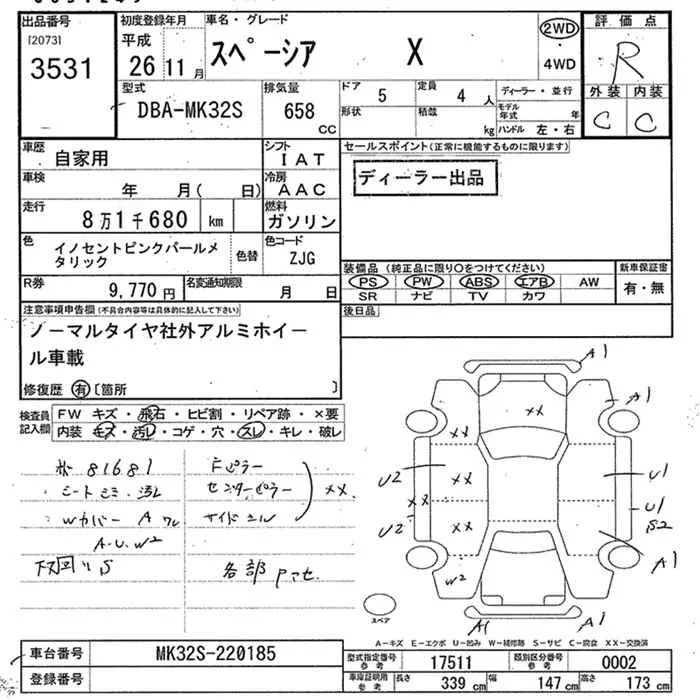 出品番号 初度登録年月 車名・グレード 2WD 評価点
[2073] 平成 スペーシア X ・ R
3531 26 11月 4WD
型式 排気量 ドア 定員 ディーラー・並行 外装 内装
DBA-MK32S 658 CC 5 4 人 C C
形状 積載 kg モデル年式 年
ハンドル 左・右
車歴 自家用 シフト IAT セールスポイント(正常に機能するものに限ります)
車検 年 月( 日) 冷房 AAC ディーラー出品
走行 8万1千680 km 燃料 ガソリン
色 イノセントピンクパールメタリック 色替 色コード ZJG
装備品 (純正品に限り○をつけてください) 新車保証書
R券 9,770円 名変通知期限 月 日 PS PW ABS エアB AW 有・無
SR ナビ TV カワ
注意事項申告欄(不具合内容等は具体的に記入して下さい) 後日品
ノーマルタイヤ社外アルミホイー
ル車載
修復歴 有 〔箇所 〕
検査員記入欄 FW キズ・飛石・ヒビ割・リペア跡・×要
内装 キズ・汚レ・コゲ・穴・スレ・キレ・破レ
A1
A1
XX
XX
81681 Fピラー
U2 XX U1
シート 汚レ センターピラー XX
XX U1
Wカバー A ワレ サイドシル
U2 XX S2
A・U・W2
A1
下回りS 各部
W2
スペア
A1 A1
A-キズ E-エクボ U-凹み W-補修跡 S-サビ C-腐食 XX-交換済
車台番号 MK32S-220185 型式指定番号 参考 17511 類別区分番号 参考 0002
登録番号 車庫証明用 参考 長さ 339 cm 幅 147 cm 高さ 173 cm